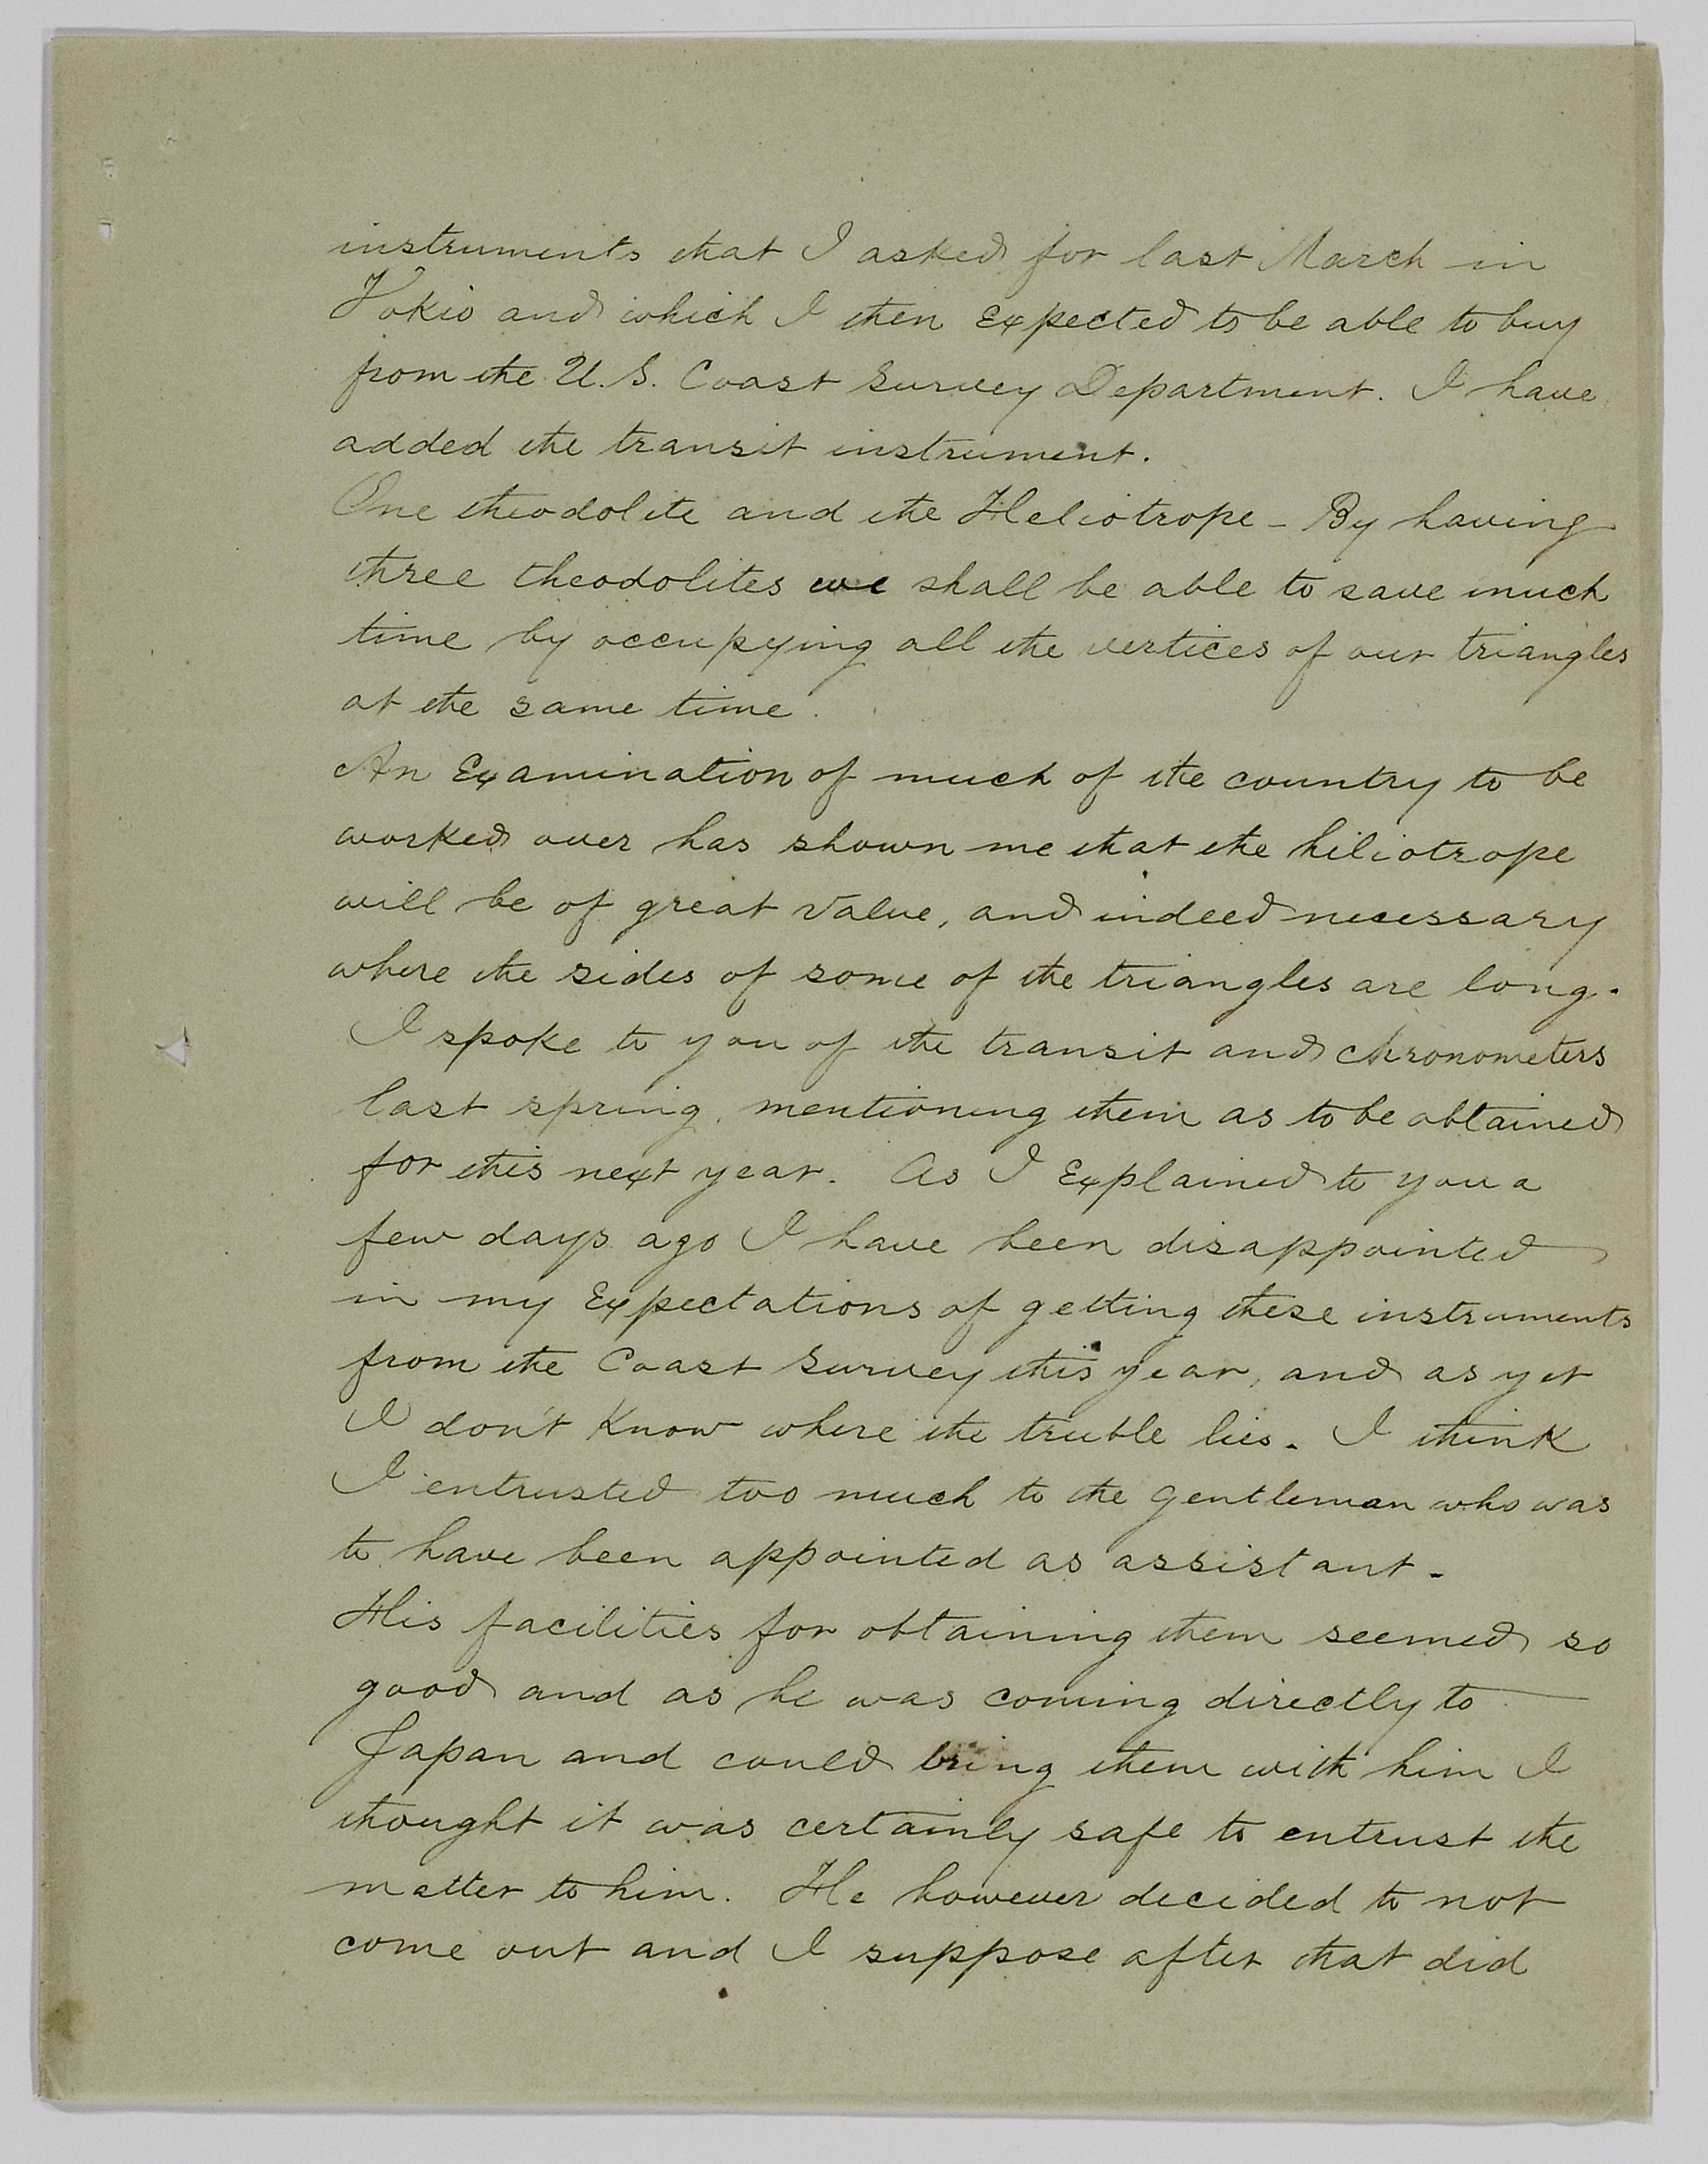 instruments that I asked for last March in
Tokio and which I then Expected to be able to buy
from the U.S. Coast Survey Department. I have
added the transit instrument.
One theodolite and the Heliotrope - By having
three theodolites we shall be able to save much
time by occupying all the vertices of our triangles
at the same time.
An Examination of much of the country to be
worked over has shown me that the hiliotrope
will be of great value, and indeed necessary
where the sides of some of the triangles are long.
I spoke to you of the transit and chronometers
last spring, mentioning them as to be obtained
for this next year. As I Explained to you a
few days ago I have been disappointed
in my Expectations of getting these instruments
from the Coast Survey this year, and as yet
I don't know where the truble lies. I think
I entrusted too much to the gentleman who was
to have been appointed as assistant.
His facilities for obtaining them seemed so
good and as he was coming directly to
Japan and could bring them with him I
thought it was certainly safe to entrust the
matter to him. He however decided to not
come out and I suppose after that did